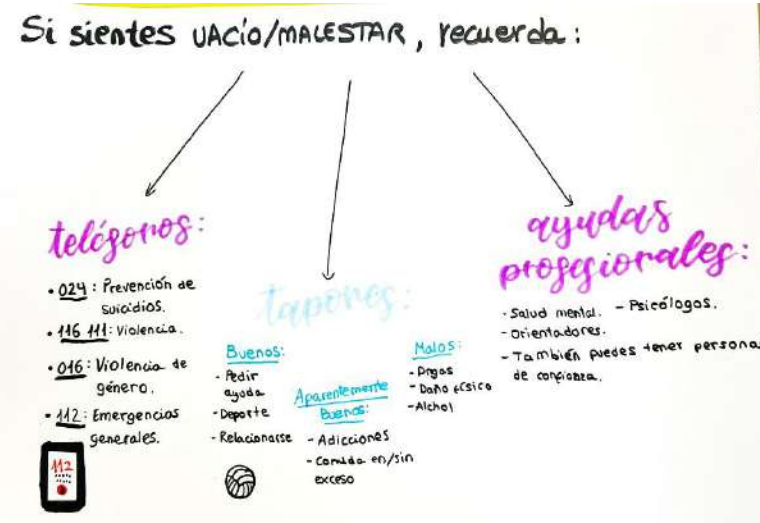 Si sientes VACÍO/MALESTAR, recuerda:
teléfonos:
• 024: Prevención de
suicidios.
• 116 111: Violencia.
• 016: Violencia de
género.
• 112: Emergencias
generales.
112
tapones:
Buenos:
- Pedir
ayuda
- Deporte
- Relacionarse
Aparentemente
Buenos:
- Adicciones
- Comida en/sin
exceso
Malos:
- Drogas
- Daño físico
- Alchol
ayudas
profesionales:
- Salud mental. - Psicólogos.
- Orientadores.
- También puedes tener persona
de confianza.